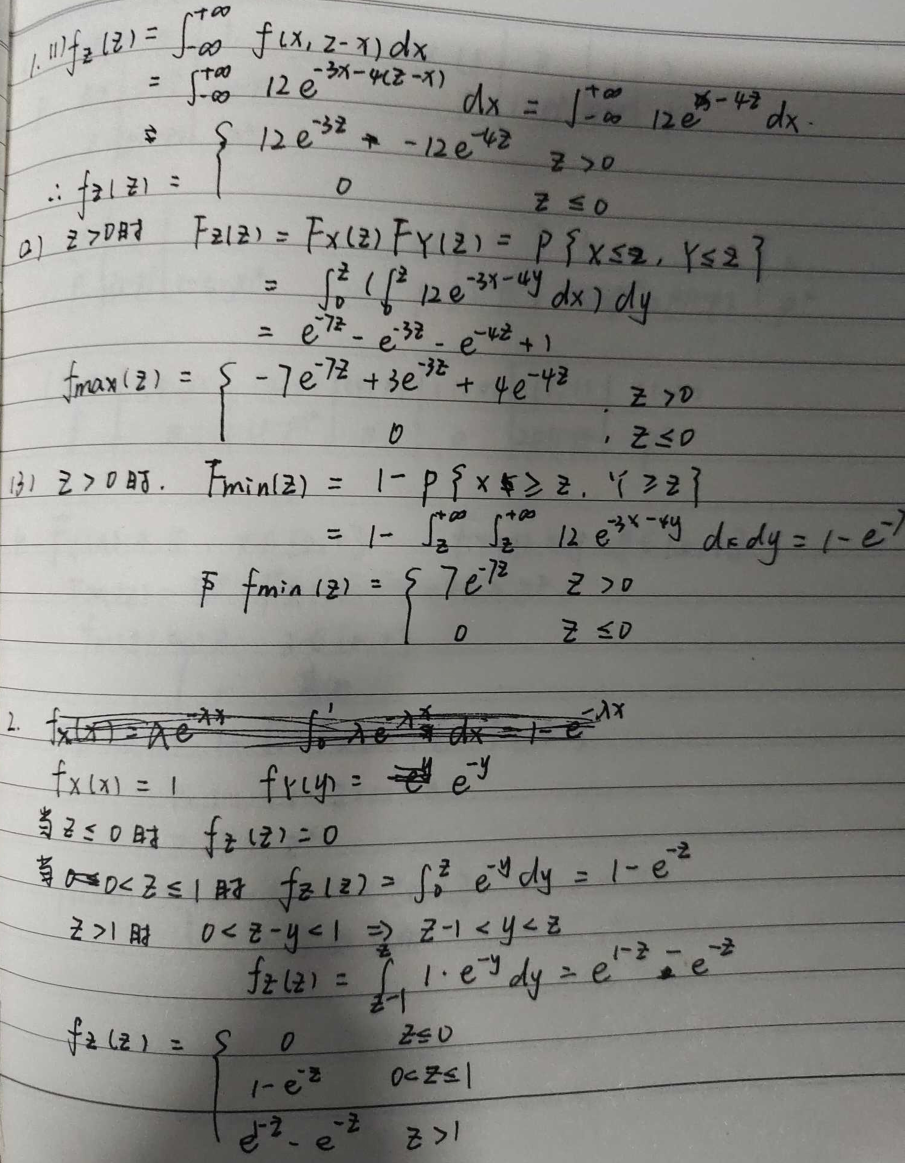 1. (1) f_Z(z) = ∫_{-∞}^{+∞} f(x, z-x) dx
= ∫_{-∞}^{+∞} 12e^{-3x-4(z-x)} dx = ∫_{-∞}^{+∞} 12e^{x-4z} dx.
∴ f_Z(z) = { 12e^{-3z} - 12e^{-4z} z>0
0 z≤0
(2) z>0时 F_Z(z) = F_X(z) F_Y(z) = P{X≤z, Y≤z}
= ∫_0^z (∫_0^z 12e^{-3x-4y} dx) dy
= e^{-7z} - e^{-3z} - e^{-4z} + 1
f_max(z) = { -7e^{-7z} + 3e^{-3z} + 4e^{-4z} , z>0
0 , z≤0
(3) z>0时. F_min(z) = 1-P{X≥z, Y≥z}
= 1- ∫_z^{+∞} ∫_z^{+∞} 12e^{-3x-4y} dxdy = 1-e^{-7
f_min(z) = { 7e^{-7z} z>0
0 z≤0
2. f_X(x) = λe^{-λx} ∫_0^1 λe^{-λx} dx = 1-e^{-λx}
f_X(x) = 1 f_Y(y) = e^{-y}
当z≤0时 f_Z(z)=0
当0<z≤1时 f_Z(z) = ∫_0^z e^{-y} dy = 1-e^{-z}
z>1时 0<z-y<1 ⇒ z-1<y<z
f_Z(z) = ∫_{z-1}^z 1·e^{-y} dy = e^{1-z} - e^{-z}
f_Z(z) = { 0 z≤0
1-e^{-z} 0<z≤1
e^{1-z} - e^{-z} z>1